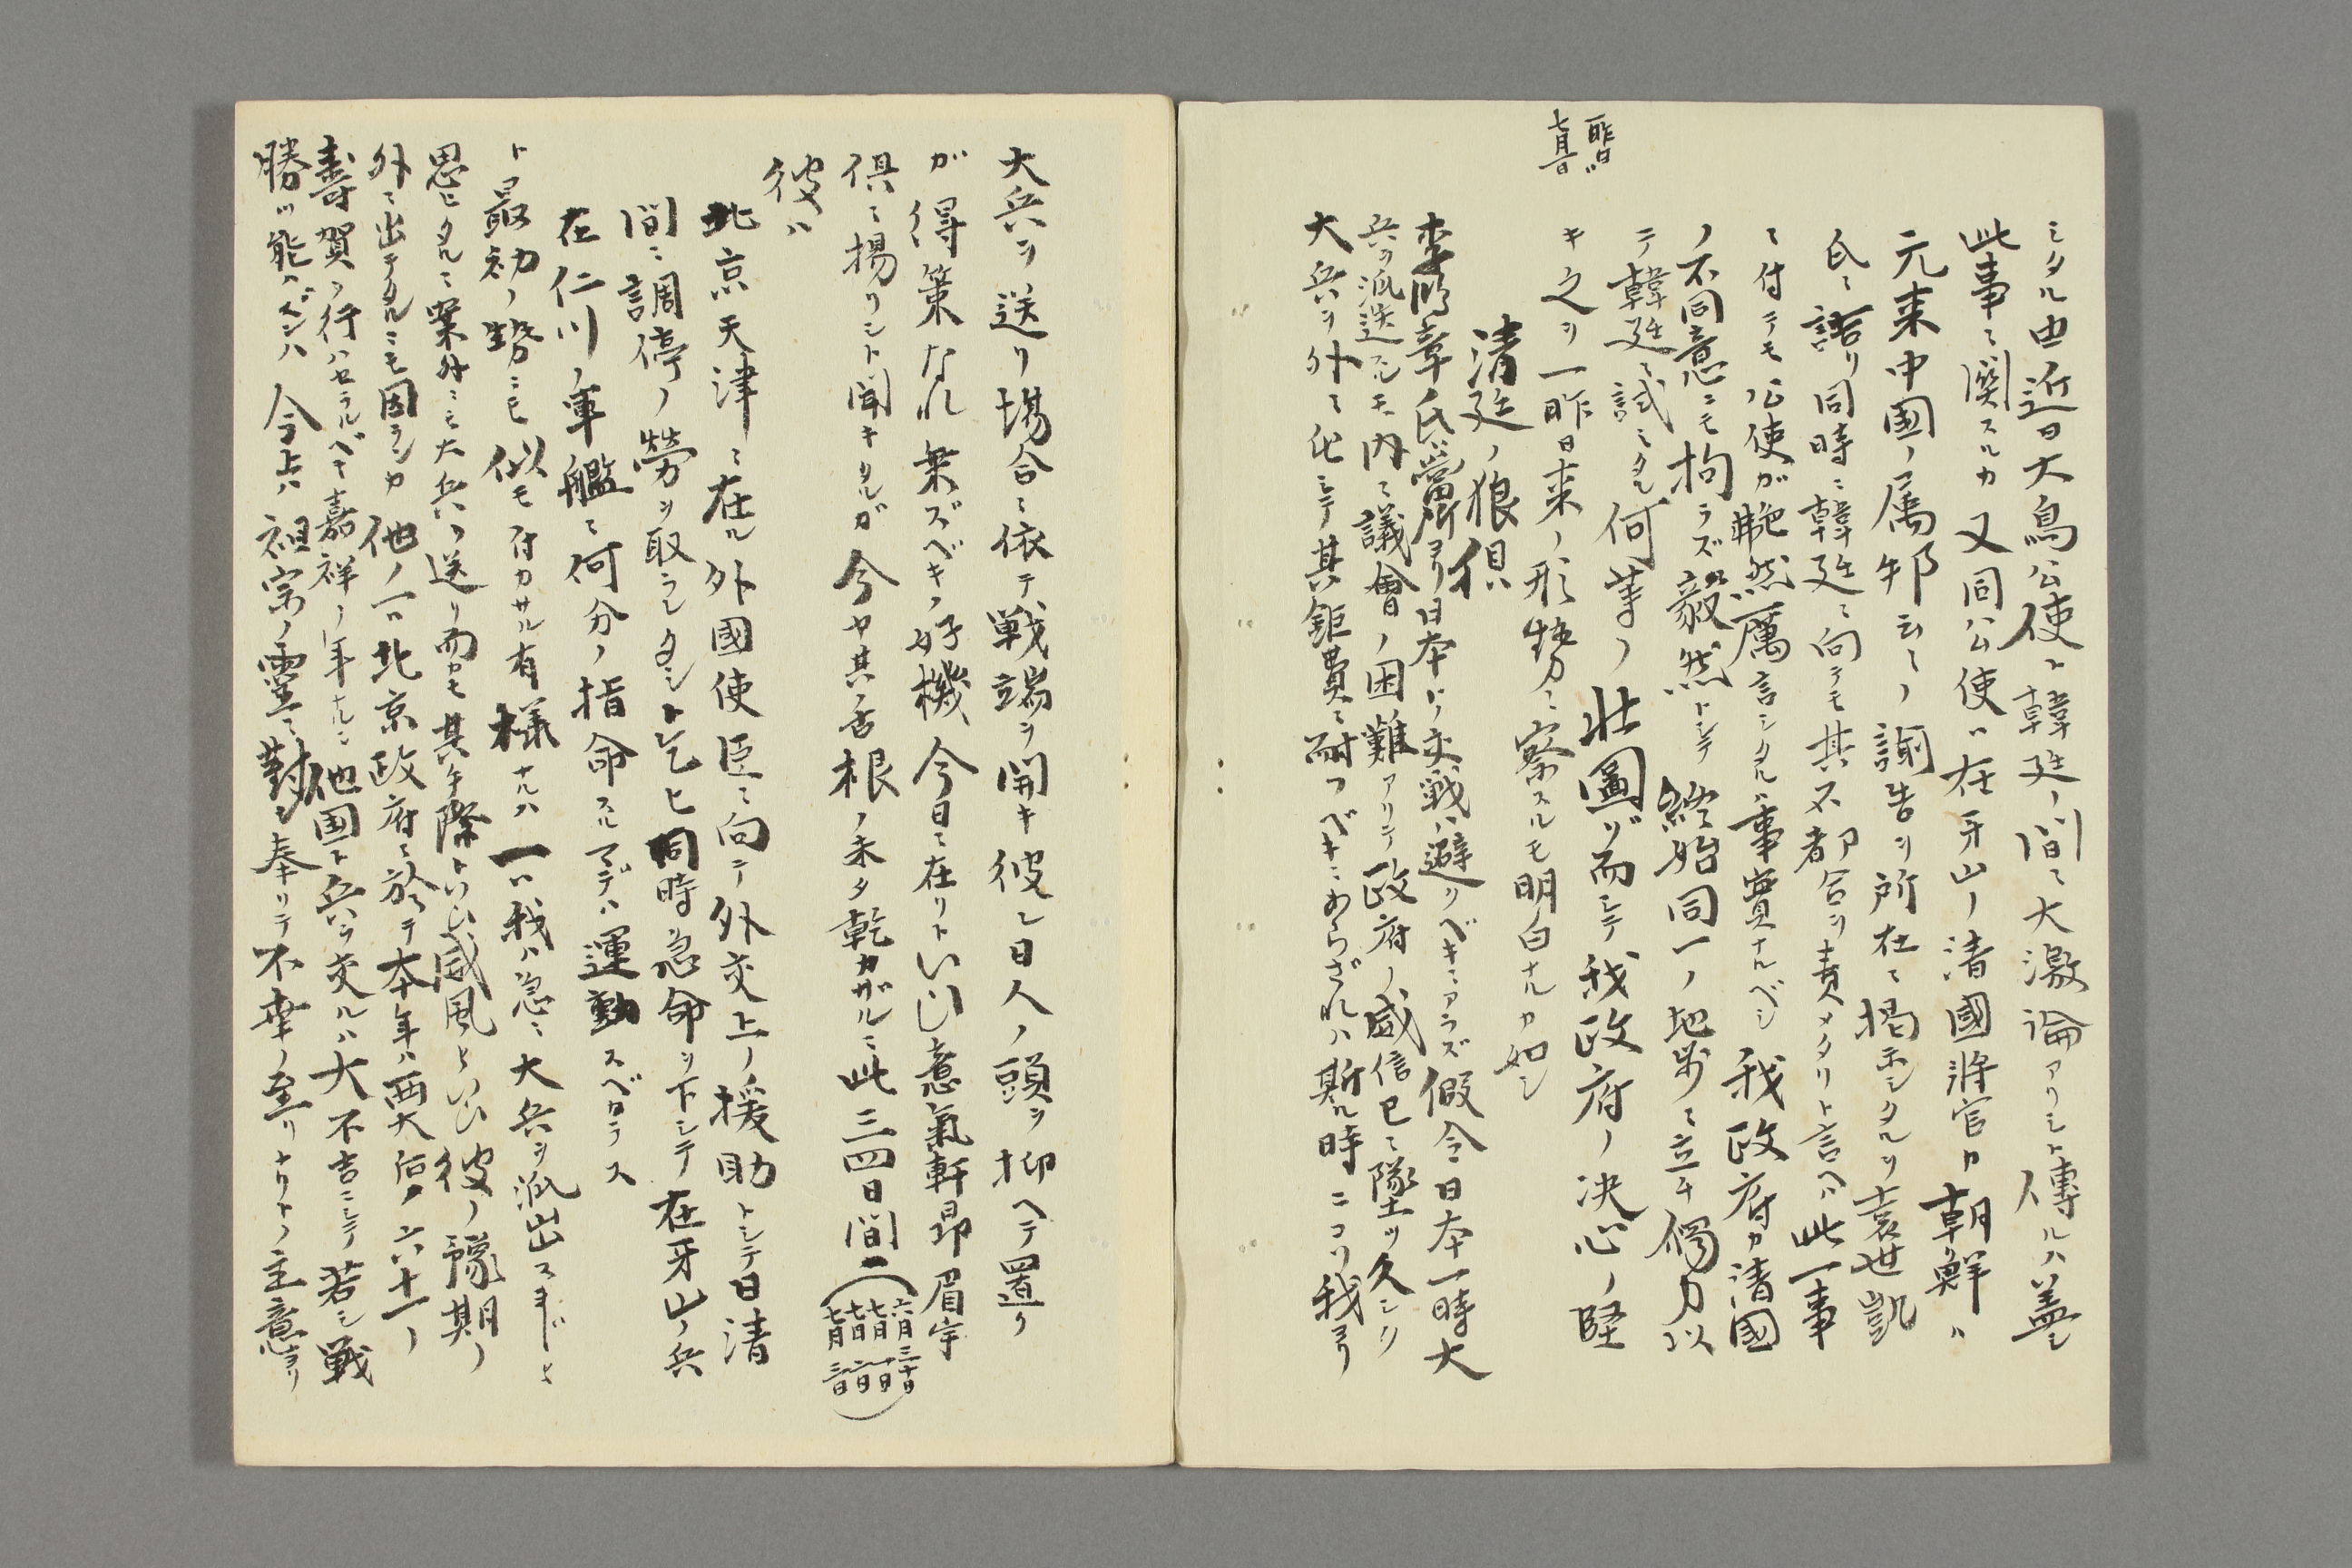 ミタル由近日大鳥公使ト韓廷ノ間ニ大激論アリシト傳ルハ蓋シ
此事ニ関スルカ又同公使ハ在牙山ノ清國将官カ朝鮮ハ
元来中國ノ属邦云々ノ諭告ヲ所在ニ掲示シタルヲ袁世凱
氏ニ詰リ同時ニ韓廷ニ向テモ其不都合ヲ責メタリト言ヘハ此一事
ニ付テモ公使が艴然厲言シタルハ事實ナルベシ我政府カ清國
ノ不同意ニモ拘ラズ毅然トシテ終始同一ノ地歩ニ立チ獨力以
テ韓廷ニ試ミタル何等ノ壮圖ゾ而シテ我政府ノ決心ノ堅
キ之ヲ一昨日来ノ形勢ニ察スルモ明白ナルカ如シ
一昨日ハ
七月一日
清廷ノ狼狽
李鴻章氏ハ當所ヨリ日本トノ交戦ハ避クベキニアラズ假令日本一時大
兵ヲ派送スルモ内ニ議會ノ困難アリテ政府ノ威信已ニ墜ツ久シク
大兵ヲ外ニ出シテ其鉅費ニ耐フベキニあらざれハ斯ル時ニコソ我ヨリ
大兵ヲ送リ場合ニ依テ戦端ヲ開キ彼レ日人ノ頭ヲ抑ヘテ置ク
が得策なれ乗ズベキノ好機今日ニ在リトいひし意氣軒昂眉宇
倶ニ揚リシト聞キタルガ今ヤ其ノ舌根ノ未タ乾カザルニ此三四日間ニ
(六月三十日
七月一日
七月二日
七月三日)
彼ハ
北京天津ニ在ル外國使臣ニ向テ外交上ノ援助トシテ日清
間ニ調停ノ勞ヲ取ラレタシト乞ヒ同時急命ヲ下シテ在牙山ノ兵
在仁川ノ軍艦ニ何分ノ指命スルマデハ運動スベカラス
ト最初ノ勢ニモ似モ付カサル有様ナルハ一ハ我ハ急ニ大兵ヲ派出スまじと
思ヒタルニ案外ニモ大兵ヲ送リ而カモ其手際トいひ威風といひ彼ノ豫期ノ
外ニ出テタルニモ因ラシカ他ノ一ハ北京政府ニ於テ本年ハ西太后ノ六十一ノ
壽賀ヲ行ハセラルベキ嘉祥ノ年ナルニ他国ト兵ヲ交ルハ大不吉ニシテ若シ戦
勝ツ能ハズンハ今上ハ祖宗ノ靈ニ對シ奉リテ不幸ノ至リナリトノ主意ヨリ